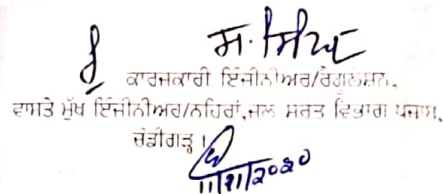 ਸ. ਸਿੰਘ
ਕਾਰਜਕਾਰੀ ਇੰਜੀਨੀਅਰ/ਰੈਗੂਲੇਸ਼ਨ,
ਵਾਸਤੇ ਮੁੱਖ ਇੰਜੀਨੀਅਰ/ਨਹਿਰਾਂ,ਜਲ ਸਰੋਤ ਵਿਭਾਗ ਪੰਜਾਬ,
ਚੰਡੀਗੜ੍ਹ।